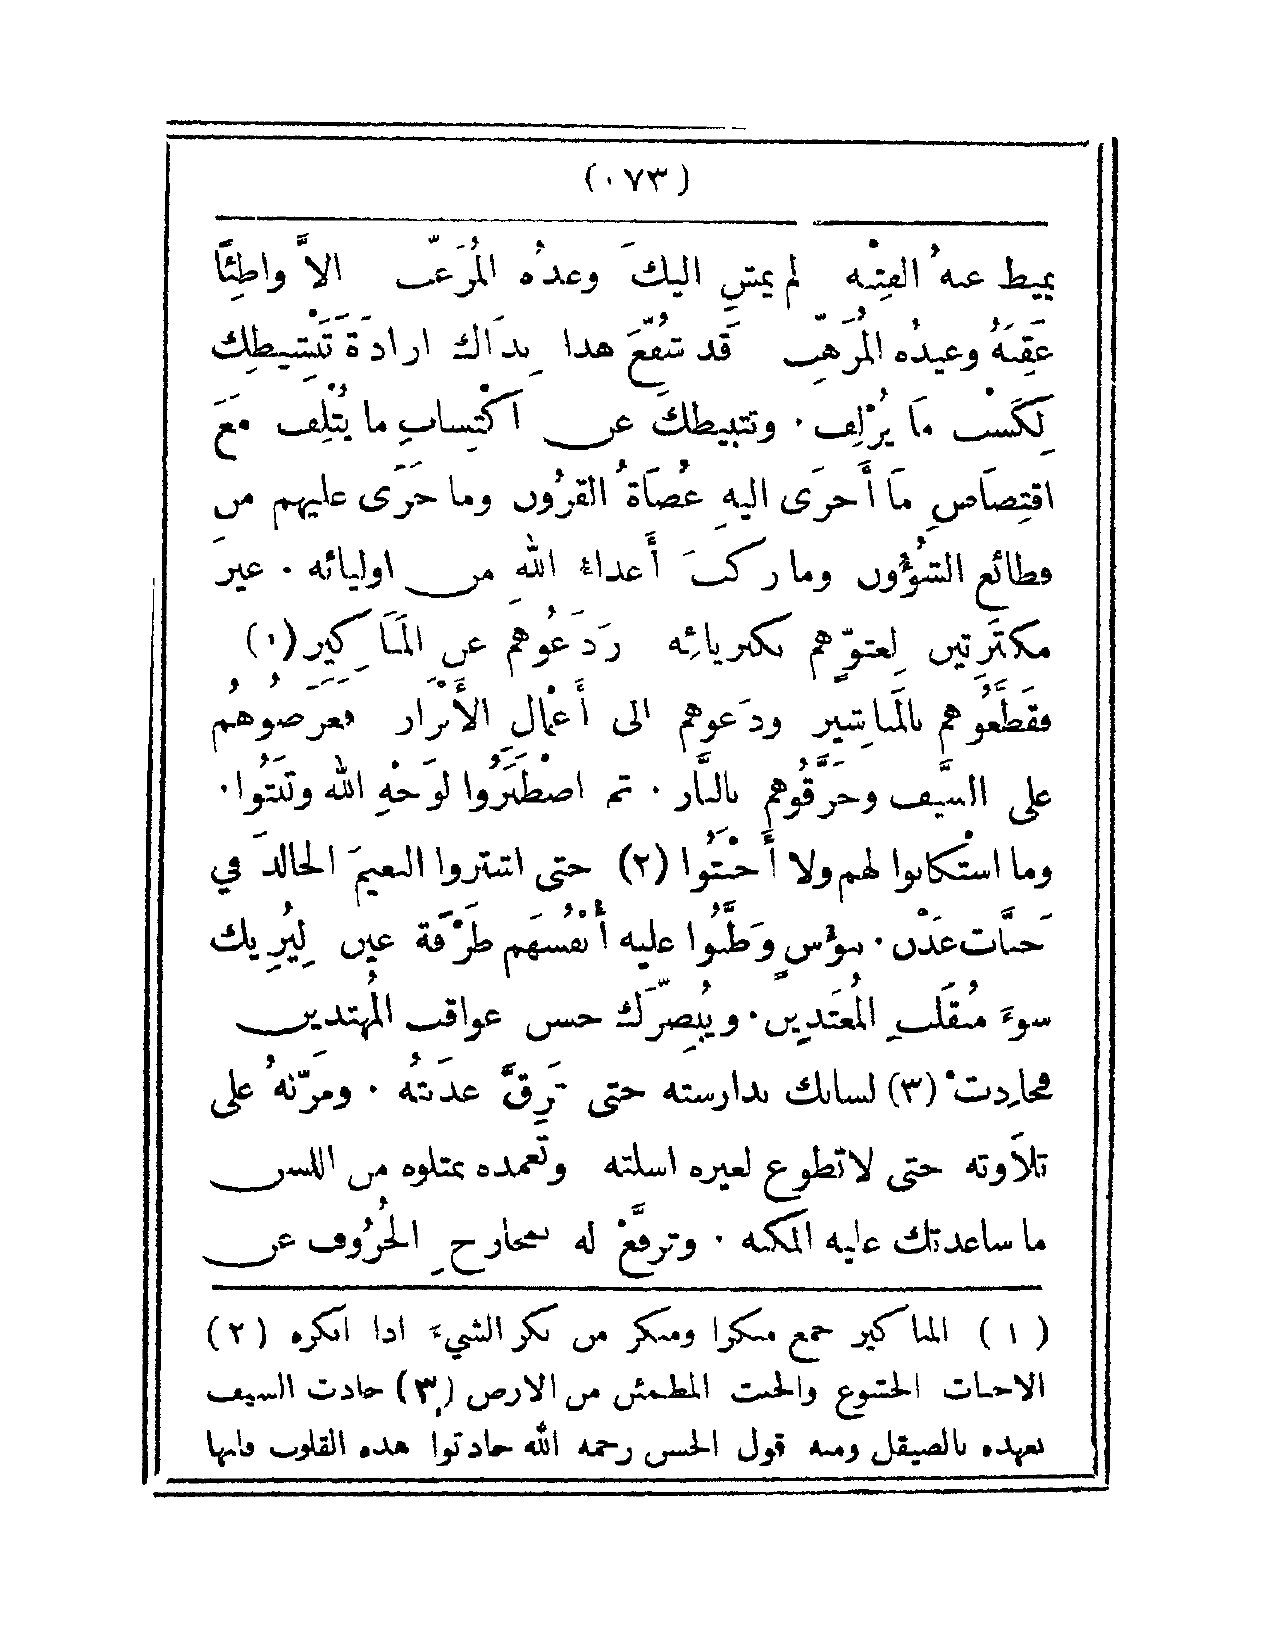 (٠٧٣)
يميط عنه الفِتْنه لم يمشِ اليكَ وعدُه المُرَغّب الاَّ واطِئًا
عَقِبَهُ وعيدُه المُرَهِّب قَد شَفَعَ هذا بِذَاك ارادَةَ تَنْشِيطِك
لِكَسْب مَا يُزْلِف . وتثبيطكَ عن اكْتِساب ما يُتْلِف مَعَ
اقتِصَاصِ مَا أَجرَى اليهِ عُصَاةُ القرُون وما جَرَى عليهم من
فظائع الشُؤُون وما ركبَ أَعداءُ اللهِ من اوليائه . غير
مكترِثين لِعتوِّهم بكبريائِه رَدَعُوهم عن المَنَاكِيرِ (١)
فقَطَّعُوهم بالمَناشِير ودَعوهم الى أَعْمَال الأَبْرار فعَرَضوهُم
على السَّيف وحَرَّقُوهم بالنَّار . ثم اصْطَبَرُوا لوَجْهِ الله وثَبَتُوا .
وما استْكانوا لهم ولا أَخْبَتُوا (٢) حتى اشتروا النعيمَ الخالدَ في
جنَّات عَدْن . ببؤسٍ وَطَّنُوا عليه أَنْفُسَهم طَرْفَة عين لِيُرِيك
سوءَ مُنقَلَبِ المُعتَدِين . ويُبصِّرَك حسن عواقب المُهتدين
فحادِثْ (٣) لسانك بدارسته حتى تَرِقَّ عذَبتُه . ومَرِّنْهُ على
تلاَوته حتى لا تطوع لغيره اسلته وتَعمده بمتلوه من اللسن
ما ساعدتك عليه المكنه . وترفَّعْ له بمخارِج الحُرُوف عن
( ١ ) المناكير جمع منكرا ومنكر من نكر الشيءَ اذا انكره ( ٢ )
الاخبات الخشوع والخبت المطمئن من الارض (٣) حادث السيف
تعهده بالصيقل ومنه قول الحسن رحمه الله حادثوا هذه القلوب فانها